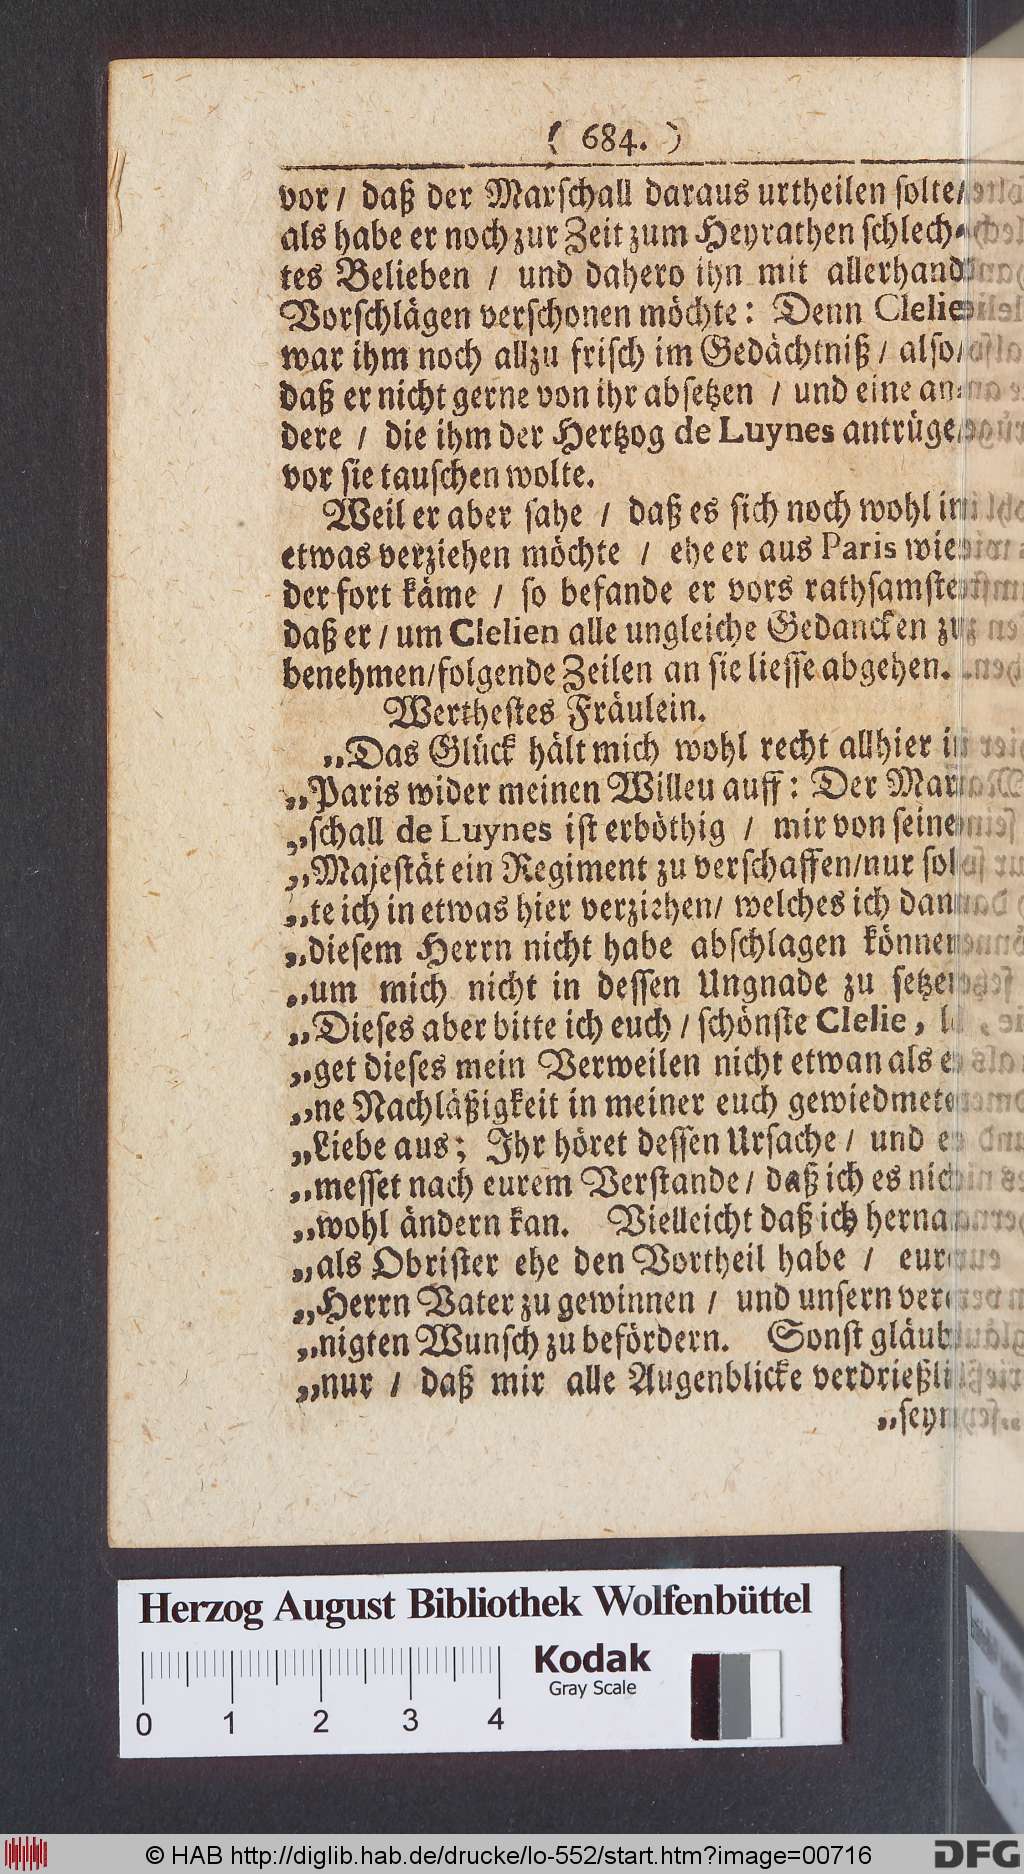 ( 684. )
vor / daß der Marschall daraus urtheilen solte/
als habe er noch zur Zeit zum Heyrathen schlech-
tes Belieben / und dahero ihn mit allerhand
Vorschlägen verschonen möchte: Denn Clelie
war ihm noch allzu frisch im Gedächtniß / also/
daß er nicht gerne von ihr absetzen / und eine an-
dere / die ihm der Hertzog de Luynes antrüge/
vor sie tauschen wolte.
Weil er aber sahe / daß es sich noch wohl in
etwas verziehen möchte / ehe er aus Paris wie-
der fort käme / so befande er vors rathsamste
daß er / um Clelien alle ungleiche Gedancken zu
benehmen/folgende Zeilen an sie liesse abgehen.
Werthestes Fräulein.
„Das Glück hält mich wohl recht allhier in
„Paris wider meinen Willeu auff: Der Mar-
„schall de Luynes ist erböthig / mir von seine
„Majestät ein Regiment zu verschaffen/nur sol
„te ich in etwas hier verziehen/ welches ich dan
„diesem Herrn nicht habe abschlagen können
„um mich nicht in dessen Ungnade zu setze
„Dieses aber bitte ich euch / schönste Clelie, l
„get dieses mein Verweilen nicht etwan als e
„ne Nachläßigkeit in meiner euch gewiedmete
„Liebe aus; Ihr höret dessen Ursache / und e
„messet nach eurem Verstande / daß ich es nic
„wohl ändern kan. Vielleicht daß ich herna
„als Obrister ehe den Vortheil habe / eur
„Herrn Vater zu gewinnen / und unsern ver
„nigten Wunsch zu befördern. Sonst gläub
„nur / daß mir alle Augenblicke verdrießli
„seyn
Herzog August Bibliothek Wolfenbüttel
Kodak
Gray Scale
0 1 2 3 4
© HAB http://diglib.hab.de/drucke/lo-552/start.htm?image=00716
DFG